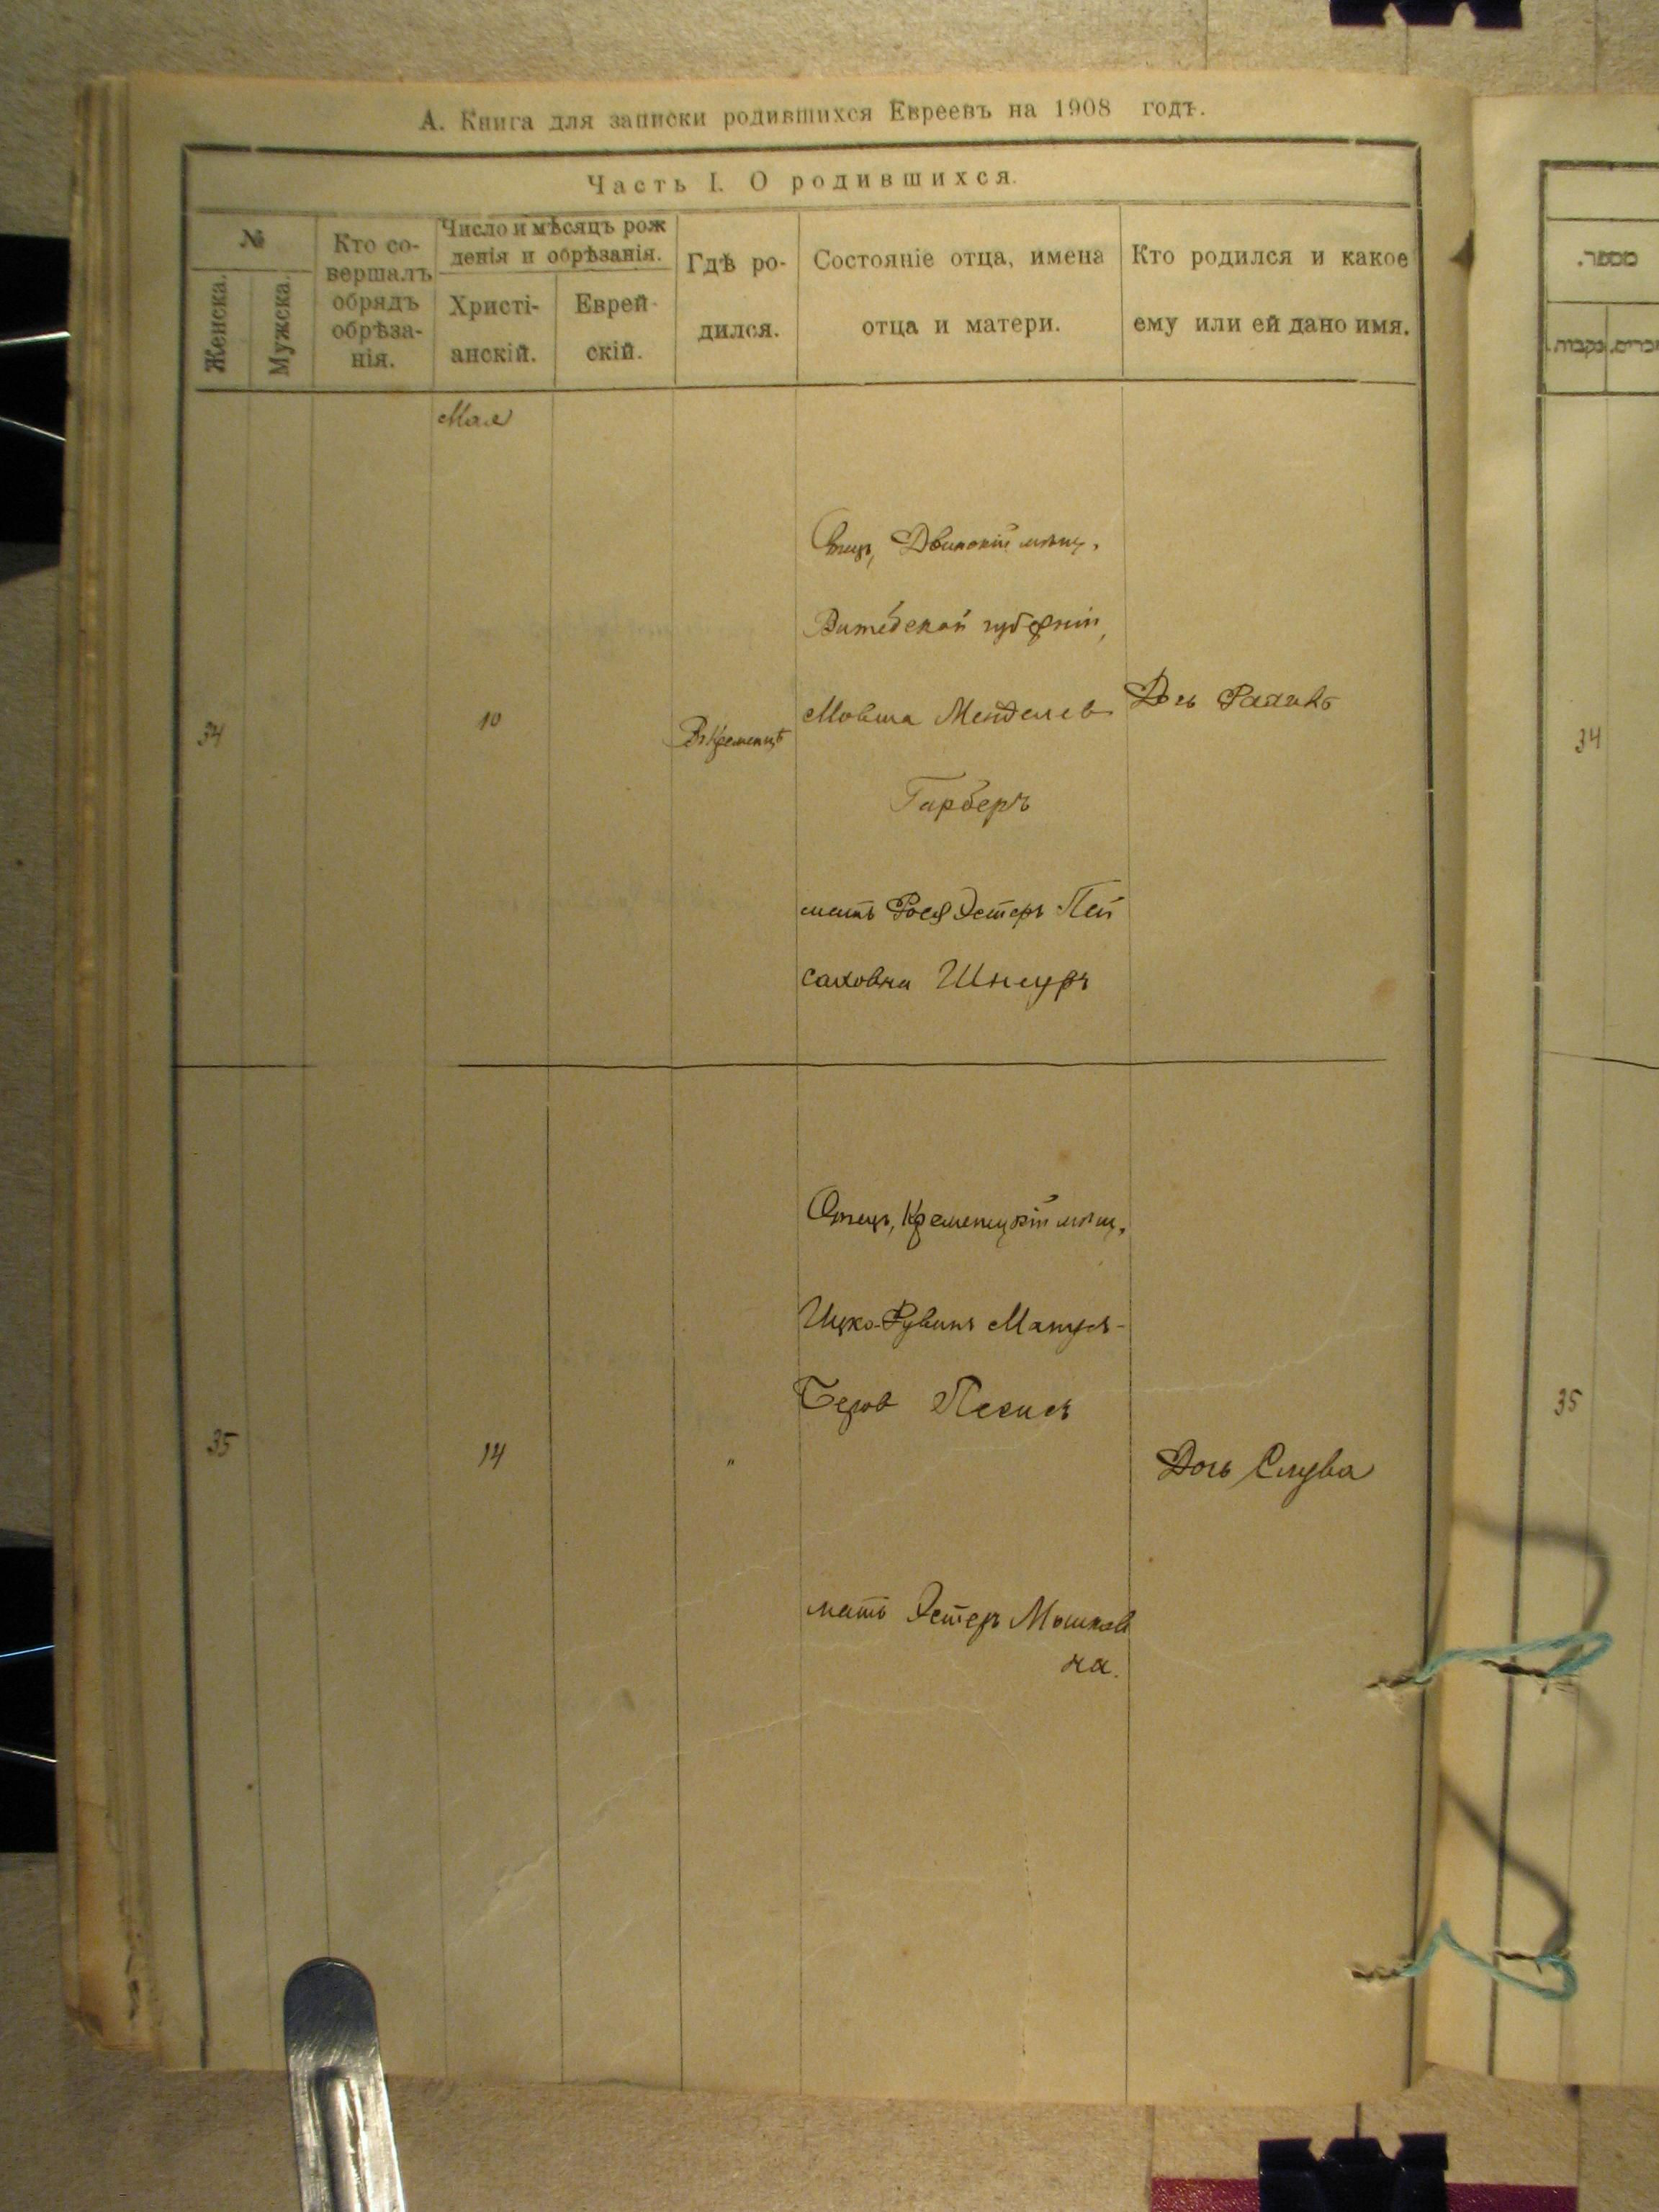 А. Книга для записки родившихся Евреевъ на 1908 годъ.
Часть I. О родившихся.
№
Женска.
Мужска.
Кто со-
вершалъ
обрядъ
обрѣза-
нія.
Число и мѣсяцъ рож
денія и обрѣзанія.
Христі-
анскій.
Еврей-
скій.
Гдѣ ро-
дился.
Состояніе отца, имена
отца и матери.
Кто родился и какое
ему или ей дано имя.
Мая
34
10
Въ Кременцѣ
Отецъ, Двинскій мѣщ.
Витебской губерніи,
Мовша Менделев
Гарберъ
мать Рося Эстеръ Пей
саховна Шнеуръ
Дочь
35
14
"
Отецъ, Кременецкій мѣщ.
Ицко-Рувинъ Манусъ-
Беров Песисъ
мать Эстеръ Мошков
на.
Дочь Слува
מספר.
זכרים.
נקבות.
34
35